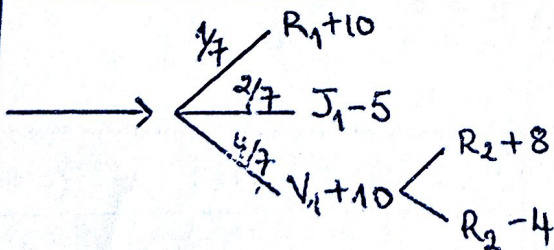 1/7 R₁+10
2/7 J₁-5
4/7 V₁+10
R₂+8
R₂-4